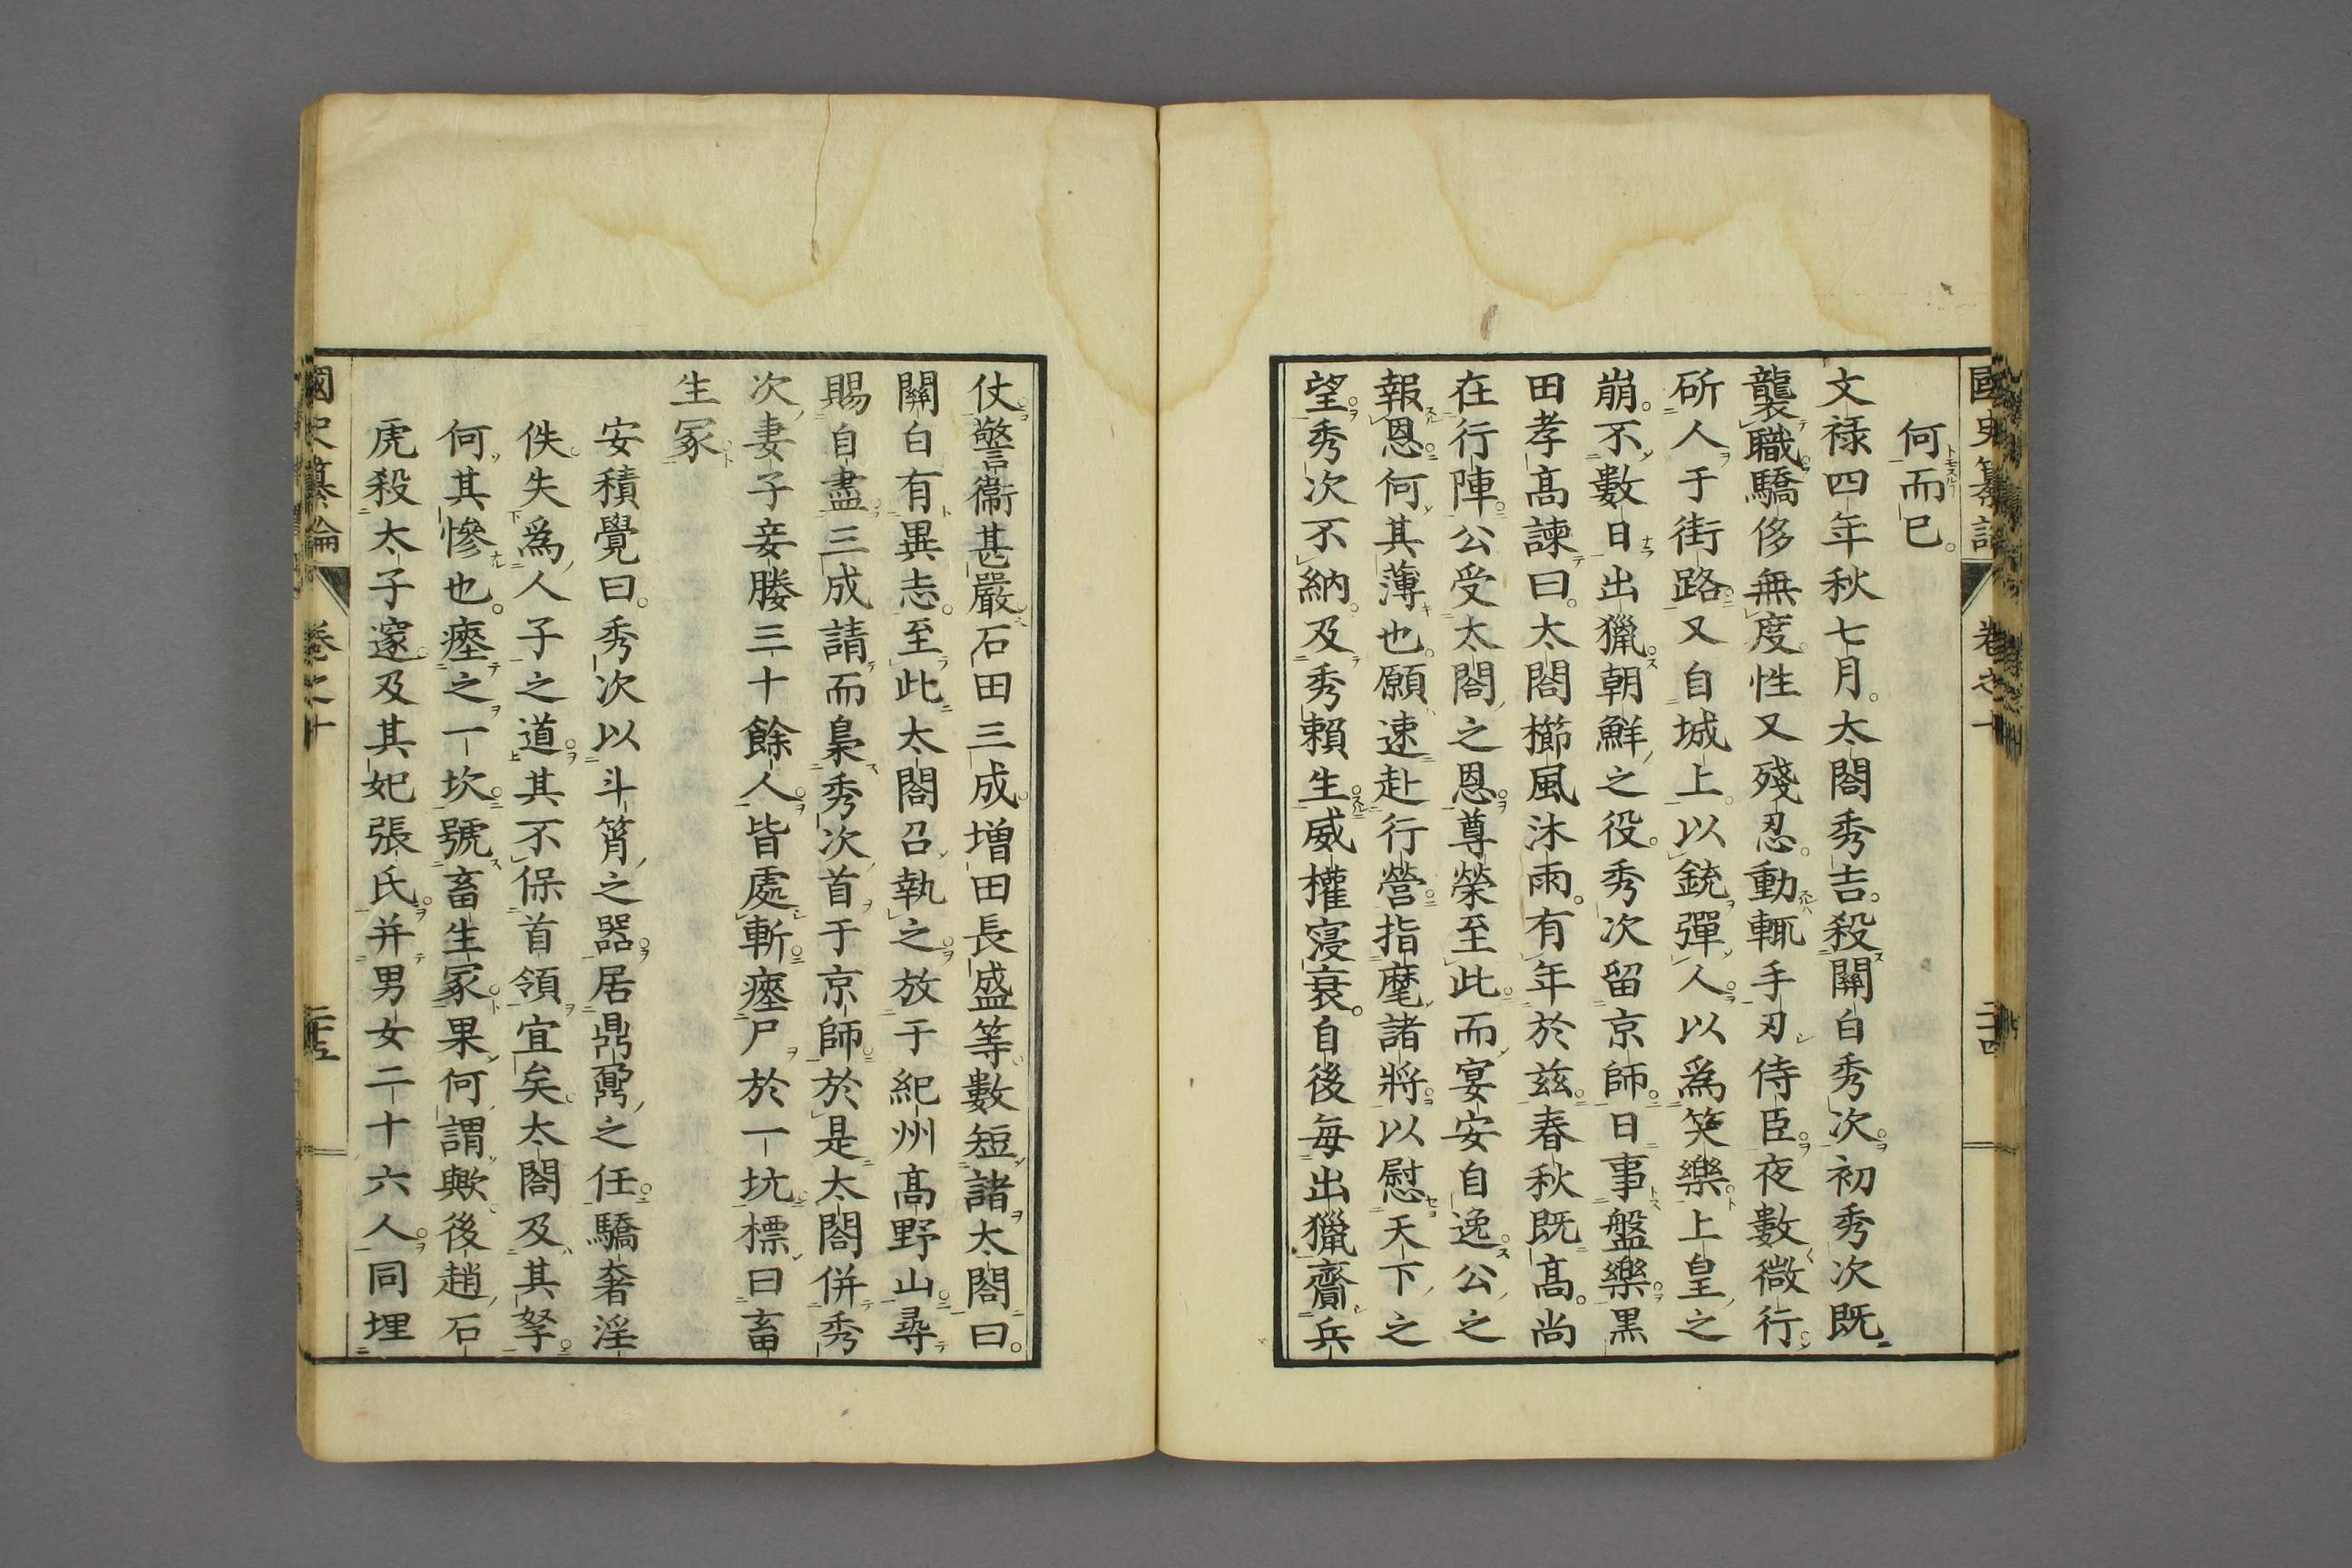 國史纂論
卷之十
二十四
何而已
文祿四年秋七月太閤秀吉殺關白秀次初秀次既
襲職驕侈無度性又殘忍動輒手刃侍臣夜數微行
斫人于街路又自城上以銃彈人以爲笑樂上皇之
崩不數日出獵朝鮮之役秀次留京師日事盤樂黑
田孝高諫曰太閤櫛風沐雨有年於茲春秋既高尚
在行陣公受太閤之恩尊榮至此而宴安自逸公之
報恩何其薄也願速赴行營指麾諸將以慰天下之
望秀次不納及秀賴生威權寖衰自後每出獵齎兵
仗警衞甚嚴石田三成增田長盛等數短諸太閤曰
關白有異志至此太閤召執之放于紀州高野山尋
賜自盡三成請而梟秀次首于京師於是太閤併秀
次妻子妾媵三十餘人皆處斬瘞尸於一坑標曰畜
生冢
安積覺曰秀次以斗筲之器居鼎鼐之任驕奢淫
佚失爲人子之道其不保首領宜矣太閤及其孥
何其慘也瘞之一坎號畜生冢果何謂歟後趙石
虎殺太子邃及其妃張氏并男女二十六人同埋
國史纂論
卷之十
二十五